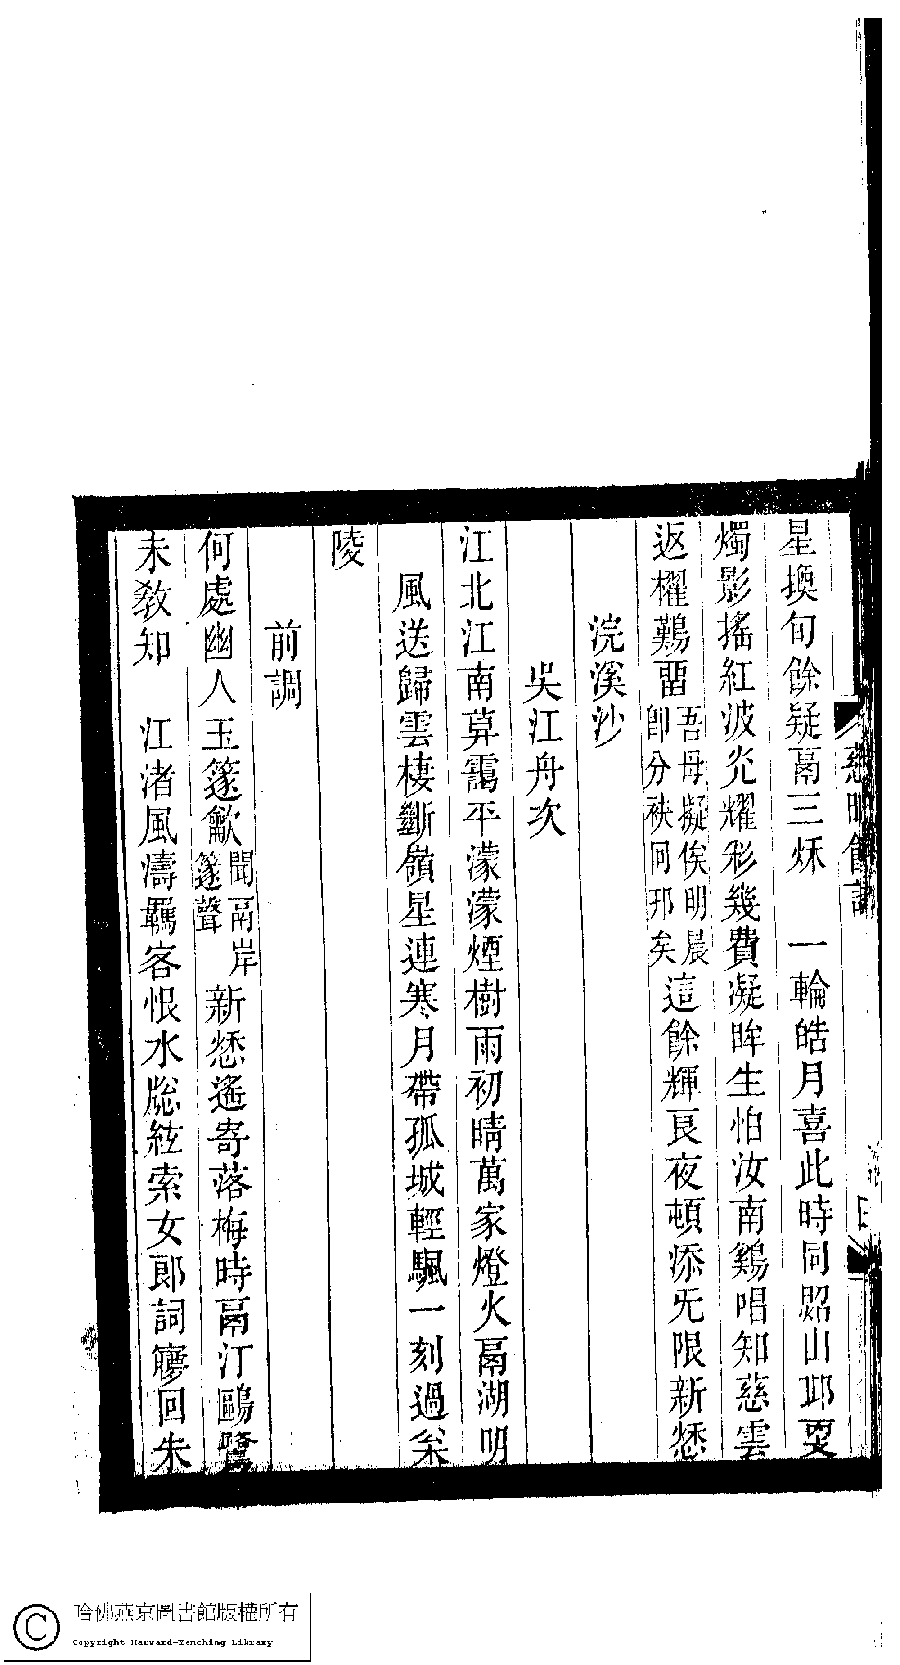 慈暉館詞
星換旬餘疑鬲三秌　一輪皓月喜此時同照山邨
燭影搖紅波光耀彩幾費凝眸生怕汝南鷄唱知慈雲
返櫂難畱吾母擬俟明晨卽分袂回邗矣這餘輝良夜頓添无限新愁
浣溪沙
吳江舟次
江北江南莫靄平濛濛煙樹雨初晴萬家燈火鬲湖明
風送歸雲棲斷嶺星連寒月帶孤城輕颿一刻過金
陵
前調
何處幽人玉篴龡聞鬲岸篴聲新愁遙寄落梅時鬲汀鷗鷺
未敎知　江渚風濤羈客恨水牕絃索女郎詞夢回朱
哈佛燕京圖書館版權所有
Copyright Harvard-Yenching Library